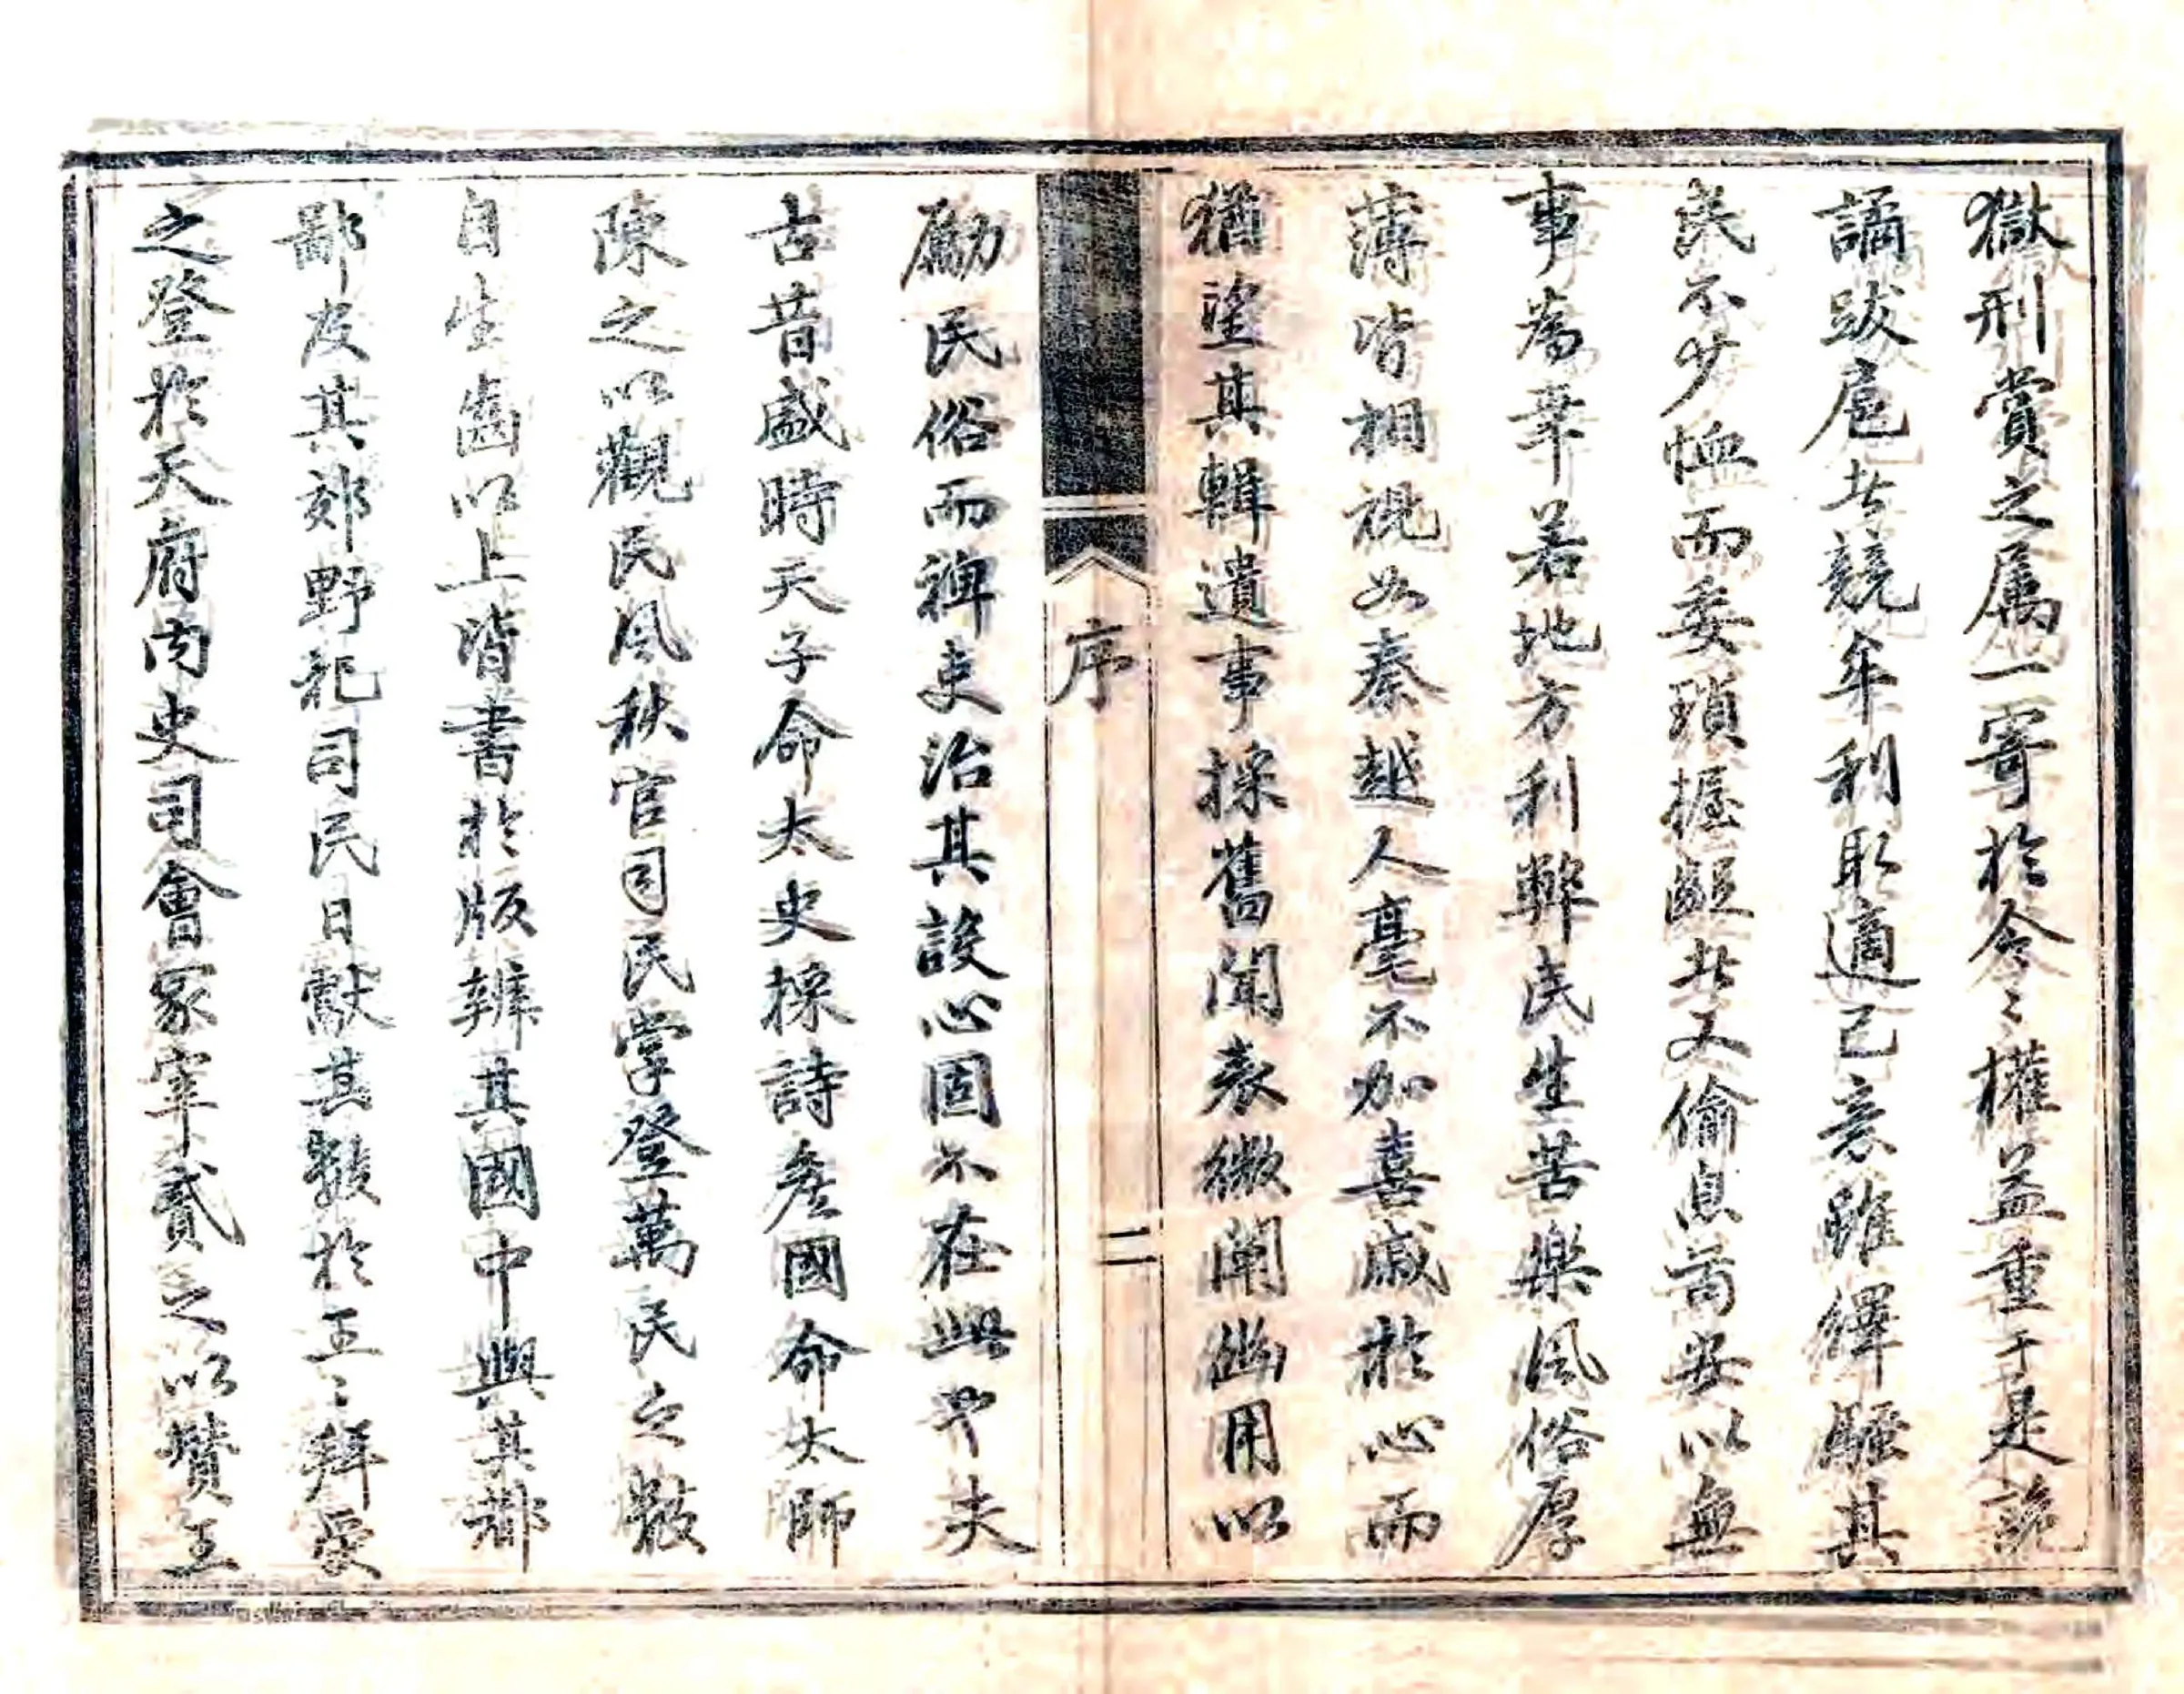 獄刑賞之属一寄於令〻權益重于是詭
譎跋扈者競牟利取適己意雖繹騷其
民不少恤而委瑣握齪者又偷息苟安以無
事為幸若地方利弊民生苦樂風俗厚
薄皆相視如秦越人毫不加喜戚於心而
猶望其輯遺事採舊聞表微闡幽用以
序
二
勵民俗而裨吏治其設心固不在此也夫
古昔盛時天子命太史採詩矦國命太師
陳之以觀民風秋官司民掌登萬民之數
自生齒以上皆書於版辨其國中與其都
鄙及其郊野祀司民日獻其數於王〻拜受
之登於天府内史司會冢宰貳之以贊王